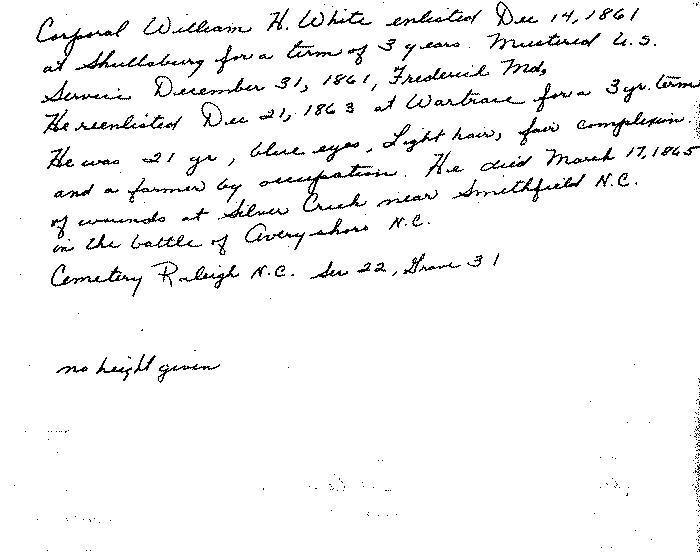 Corporal William H. White enlisted Dec 14, 1861
at Shullsburg for a term of 3 years. Mustered U.S.
Service December 31, 1861, Frederick Md,
He reenlisted Dec 21, 1863 at Wartrace for a 3 yr. term
He was 21 yr, blue eyes, Light hair, fair complexion.
and a farmer by occupation. He died March 17, 1865
of wounds at Silver Creek near Smithfield N.C.
in the battle of Averysboro N.C.
Cemetery Raleigh N.C. Sec 22, Grave 31
no height given